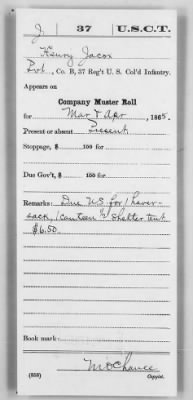 J. 37 U.S.C.T.
Henry Jacox
Pvt., Co. B, 37 Reg't U. S. Col'd Infantry.
Appears on
Company Muster Roll
for Mar & Apr, 1865.
Present or absent Present
Stoppage, $ 100 for
Due Gov't, $ 100 for
Remarks: Due U.S. for 1 haver-
sack, 1 canteen & ½ shelter tent
$6.50.
Book mark:
McChance
(858) Copyist.